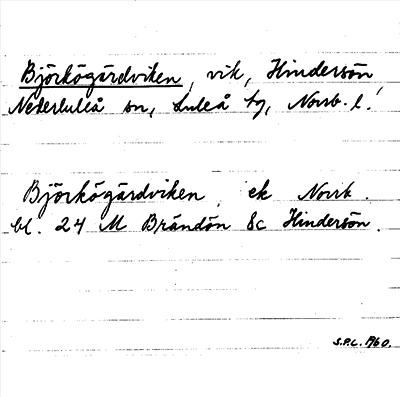 Björkögårdviken, vik, Hindersön
Nederluleå sn, Luleå tg, Norrb. l.
Björkögårdviken, ek Norrb.
bl. 24 M Brändön Sc Hindersön.
S.P.L. 1960.